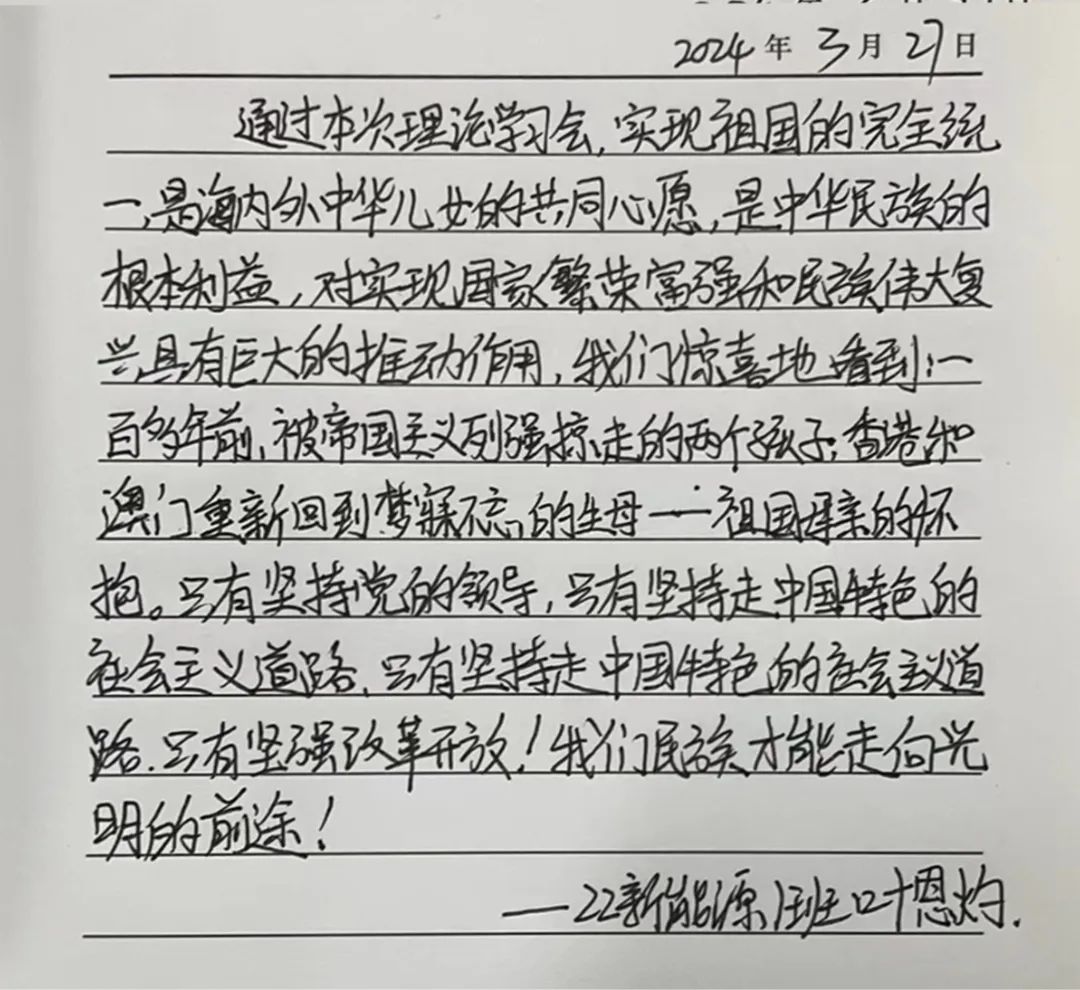 2024年3月27日
通过本次理论学习会,实现祖国的完全统
一,是海内外中华儿女的共同心愿,是中华民族的
根本利益,对实现国家繁荣富强和民族伟大复
兴具有巨大的推动作用,我们惊喜地看到:一
百多年前,被帝国主义列强掠走的两个孩子:香港和
澳门重新回到梦寐不忘的生母——祖国母亲的怀
抱。只有坚持党的领导,只有坚持走中国特色的
社会主义道路,只有坚持走中国特色的社会主义道
路,只有坚强改革开放!我们民族才能走向光
明的前途!
——22新能源1班叶恩灼.